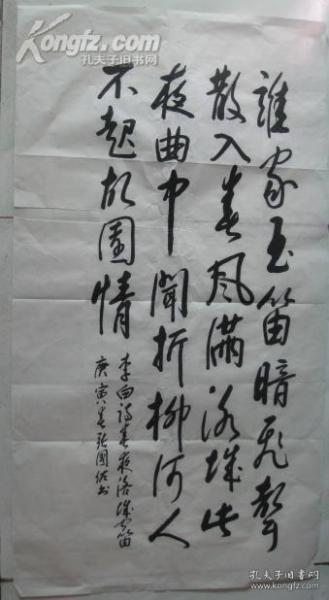 誰家玉笛暗飛聲
散入春風滿洛城此
夜曲中聞折柳何人
不起故園情
李白詩春夜洛城聞笛
庚寅春張國作書
Kongfz.com
孔夫子旧书网
孔夫子旧书网